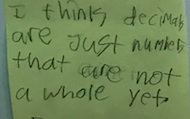 I think decimals
are just numbers
that are not
a whole yet